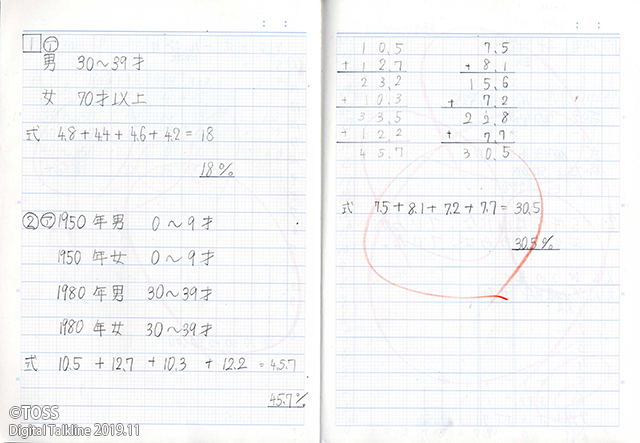 1 ㋐
男 30～39才
女 70才以上
式 4.8+4.4+4.6+4.2=18
18%
② ㋐ 1950年男 0～9才
1950年女 0～9才
1980年男 30～39才
1980年女 30～39才
式 10.5+12.7+10.3+12.2=45.7
45.7%
10.5
+12.7
23.2
+10.3
33.5
+12.2
45.7
7.5
+8.1
15.6
+7.2
22.8
+7.7
30.5
式 7.5+8.1+7.2+7.7=30.5
30.5%
©TOSS
Digital Talkline 2019.11